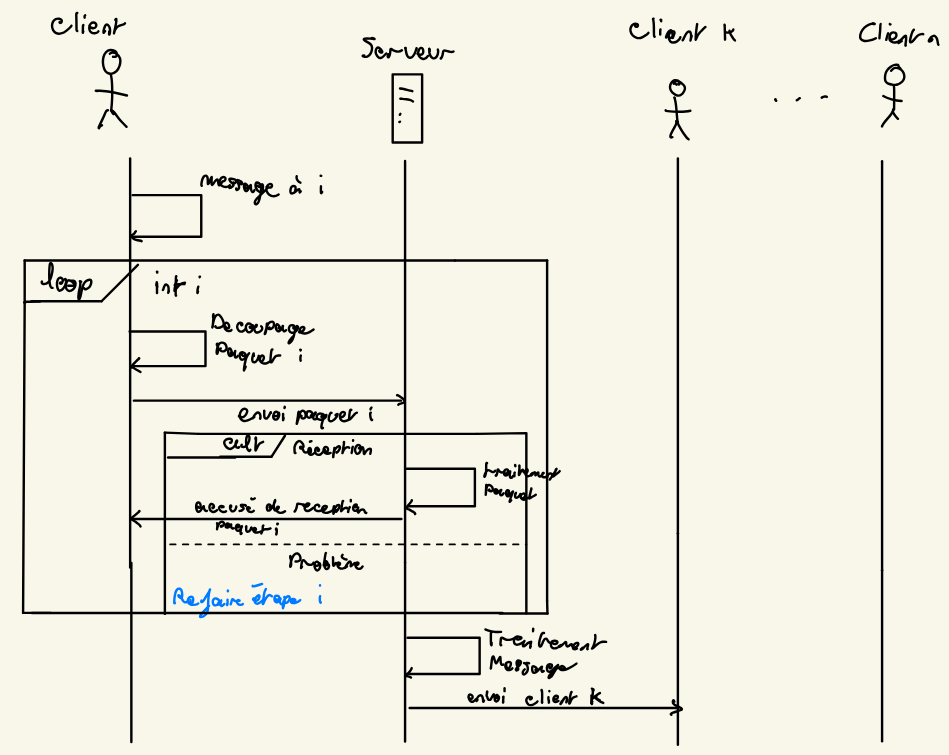 Client
Serveur
Client k
Client n
message à i
loop
int i
Decoupage
Paquet i
envoi paquet i
alt
Réception
traitement
paquet
accusé de reception
paquet i
Problème
Refaire étape i
Traitement
Message
envoi client k